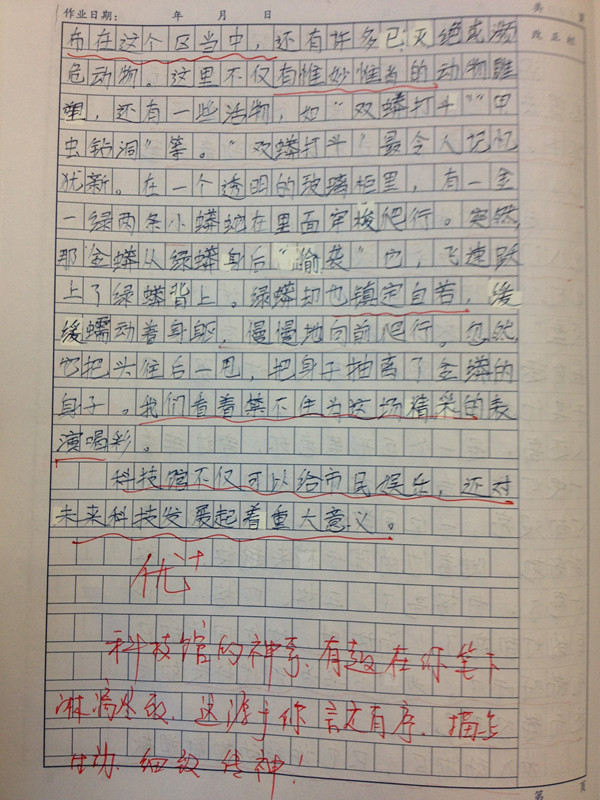 作业日期： 年 月 日
页
布在这个区当中，还有许多已灭绝或濒
危动物。这里不仅有惟妙惟肖的动物雕
塑，还有一些活物，如“双蟒打斗”“甲
虫钻洞”等。“双蟒打斗”最令人记忆
犹新。在一个透明的玻璃柜里，有一金
一绿两条小蟒蛇在里面穿梭爬行。突然，
那金蟒从绿蟒身后“偷袭”它，飞速跃
上了绿蟒背上。绿蟒却也镇定自若，缓
缓蠕动着身躯，慢慢地向前爬行。忽然，
它把头往后一甩，把身子抽离了金蟒的
身子。我们看着禁不住为这场精采的表
演喝彩。
科技馆不仅可以给市民娱乐，还对
未来科技发展起着重大意义。
优++
科技馆的神奇、有趣在你笔下
淋漓尽致，这源于你言之有序，描写
生动、细致传神！
第 页